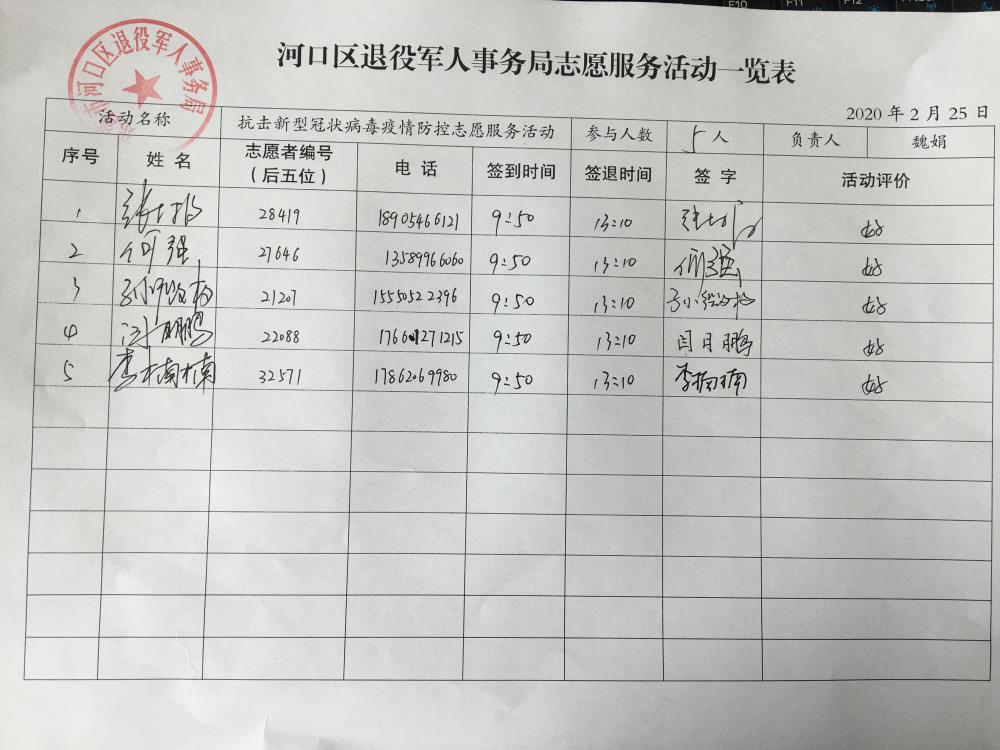 河口区退役军人事务局
河口区退役军人事务局志愿服务活动一览表
2020 年 2 月 25 日
活动名称 抗击新型冠状病毒疫情防控志愿服务活动 参与人数 5 人 负责人 魏娟
序号 姓 名 志愿者编号（后五位） 电 话 签到时间 签退时间 签 字 活动评价
1 28419 18905466121 9:50 13:10 好
2 何强 27646 13589966060 9:50 13:10 何强 好
3 21207 15550522396 9:50 13:10 好
4 闫月鹏 22088 176601271215 9:50 13:10 闫月鹏 好
5 李楠楠 32571 17862069980 9:50 13:10 李楠楠 好